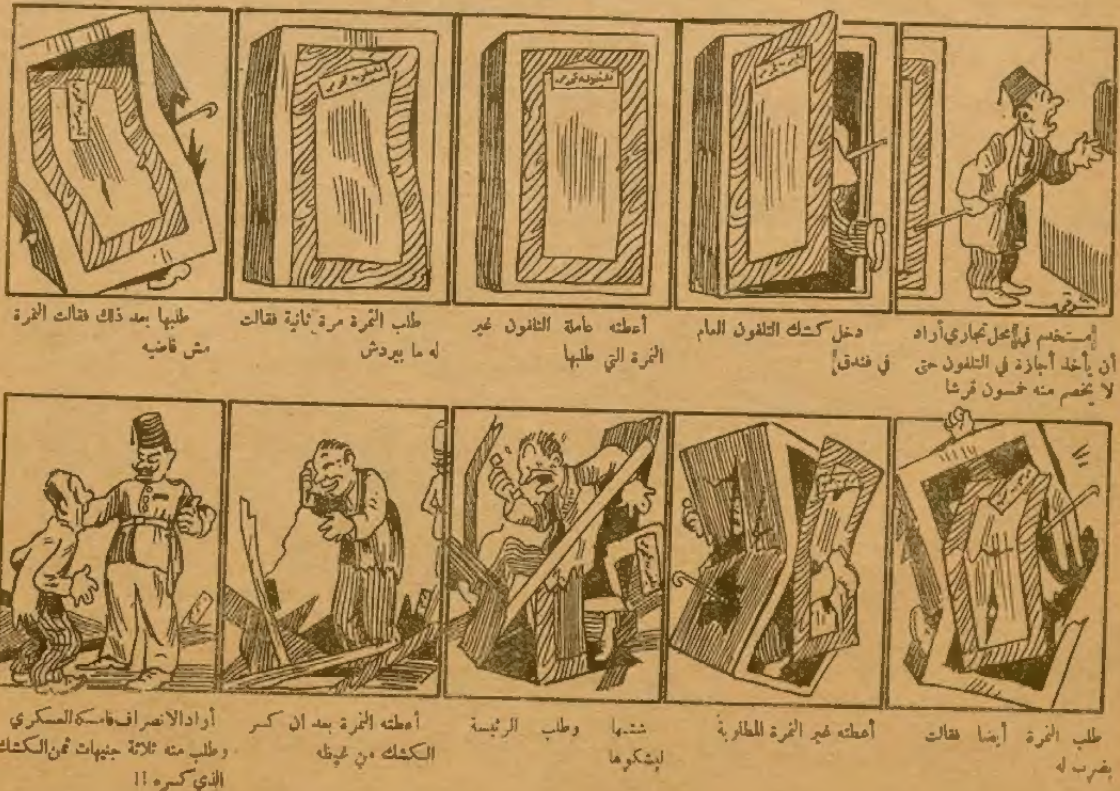 مستخدم في محل تجاري أراد
أن يأخذ أجازة في التلفون حتى
لا يخصم منه خمسون قرشا
دخل كشك التلفون العام
في فندق
أعطته عاملة التلفون غير
النمرة التي طلبها
طلب النمرة مرة ثانية فقالت
له ما بيردش
طلبها بعد ذلك فقالت النمرة
مش فاضيه
طلب النمرة أيضا فقالت
بضرب له
أعطته غير النمرة المطلوبة
شتمها وطلب الرئيسة
ليشكوها
أعطته النمرة بعد ان كسر
الكشك من غيظه
أراد الانصراف فامسكه العسكري
وطلب منه ثلاثة جنيهات ثمن الكشك
الذي كسره !!